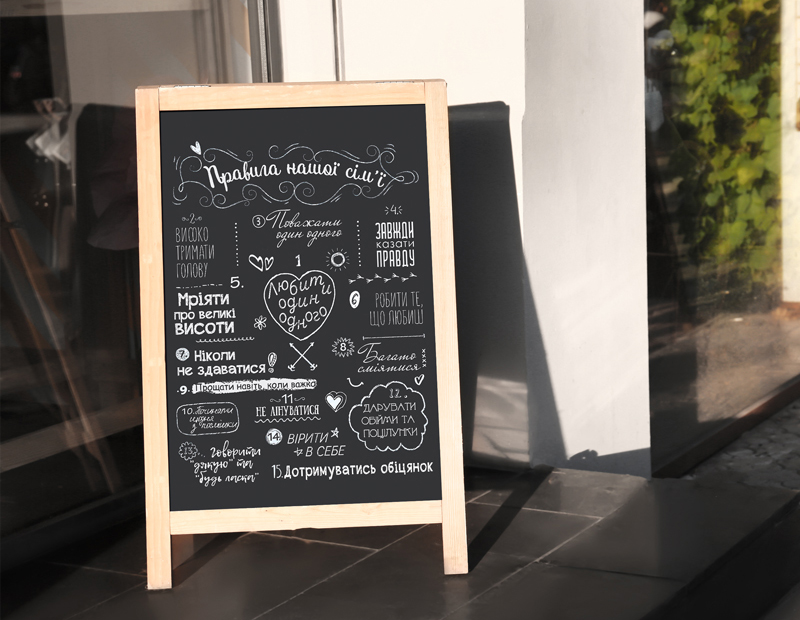 Правила нашої сім'ї
1
Любити
один
одного
2
ВИСОКО
ТРИМАТИ
ГОЛОВУ
3 Поважати
один одного
4.
ЗАВЖДИ
казати
ПРАВДУ
5.
Мріяти
про великі
ВИСОТИ
6 РОБИТИ ТЕ,
ЩО ЛЮБИШ
7. Ніколи
не здаватися!
8. Багато
сміятися
9. Прощати навіть, коли важко
10. Починати
щодня
з посмішки
11
НЕ ЛІНУВАТИСЯ
12.
ДАРУВАТИ
ОБІЙМИ ТА
ПОЦІЛУНКИ
13. Говорити
"дякую" та
"будь ласка"
14 ВІРИТИ
В СЕБЕ
15. Дотримуватись обіцянок